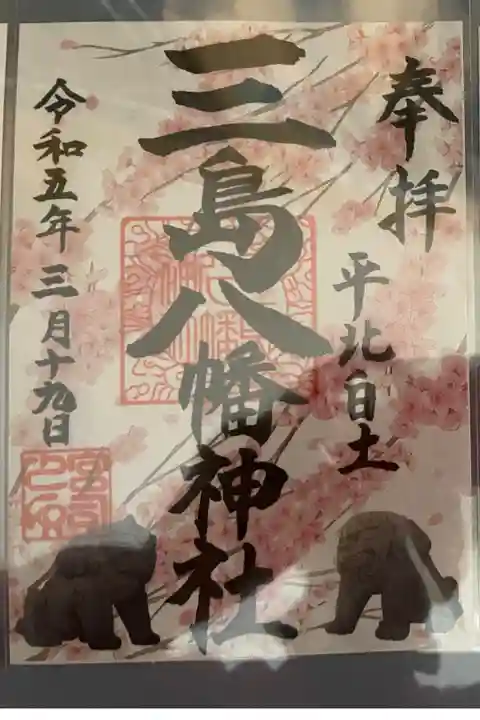 奉拝
平北白土
三島八幡神社
令和五年三月十九日